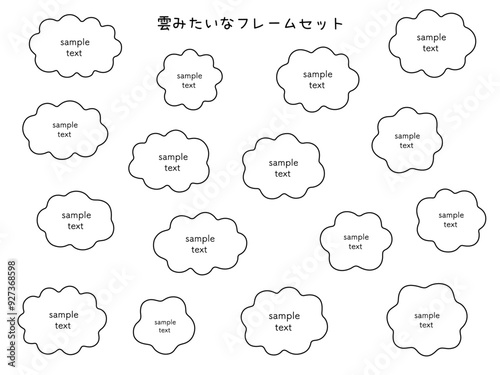 雲みたいなフレームセット
sample
text
sample
text
sample
text
sample
text
sample
text
sample
text
sample
text
sample
text
sample
text
sample
text
sample
text
sample
text
sample
text
sample
text
sample
text
sample
text
Adobe Stock | #927368598